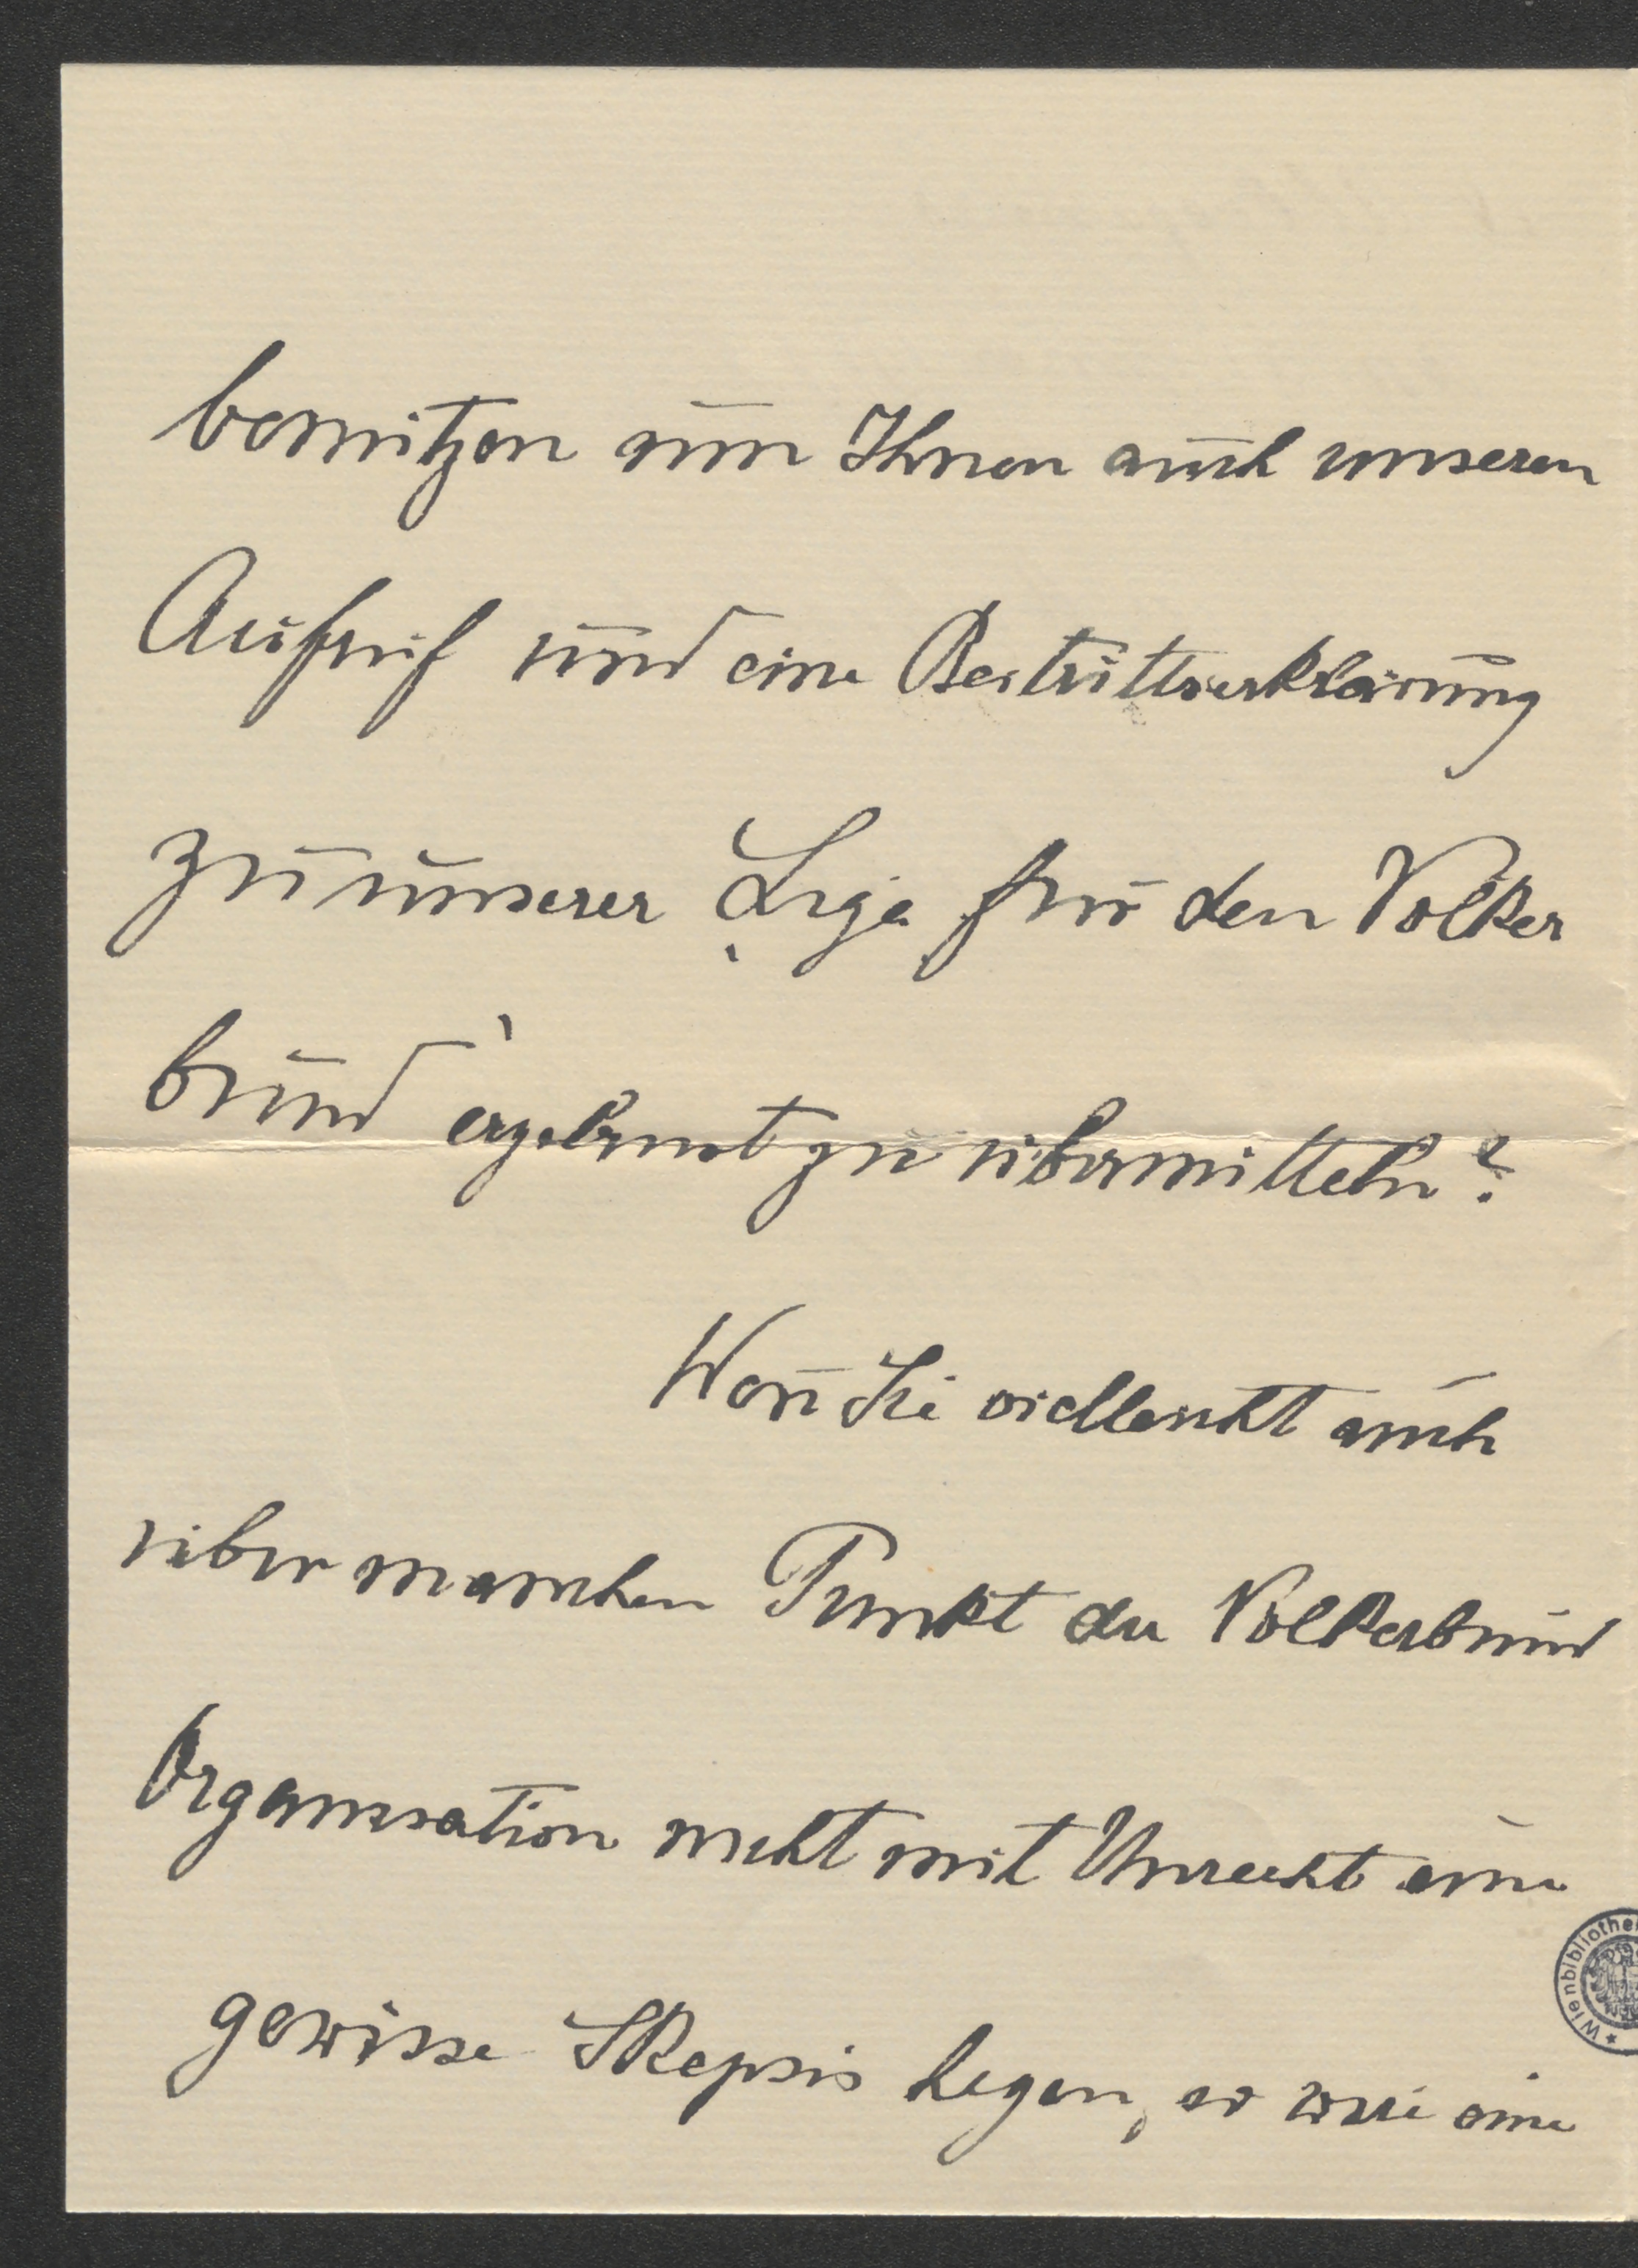 benützen um Ihnen auch unseren
Aufruf und eine Beitrittserklärung
zu unserer „Liga für den Völker
bund“ ergebenst zu übermitteln?
Wenn Sie vielleicht auch
über manchen Punkt der Völkerbund
Organisation nicht mit Unrecht eine
gewisse Skepsis hegen, so wäre eine
Wienbibliothe